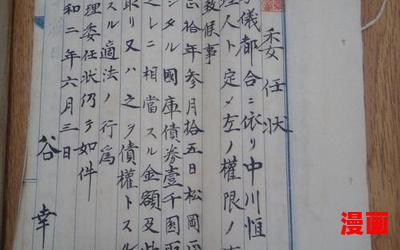 委任状
儀都合ニ依リ中川恒
理人ト定メ左ノ權限ノ
候事
拾年参月拾五日松岡
シタル國庫債券壹千圓
之レニ相當スル金額及
取リ又ハ之ヲ債權トスル
スル適法ノ行為
理委任状仍テ如件
和二年六月三日
谷幸
漫画